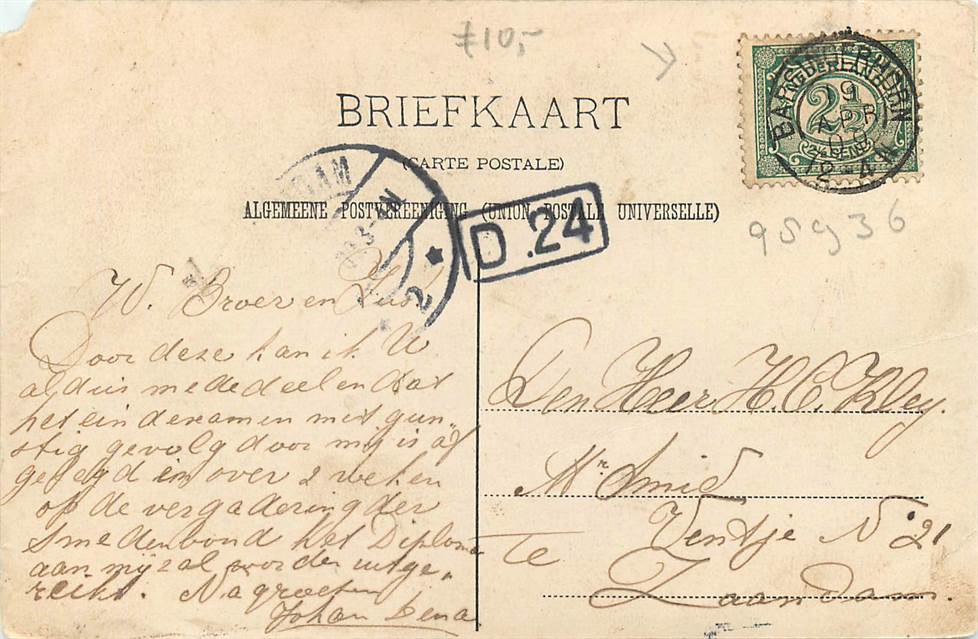 ƒ10,-
BRIEFKAART
(CARTE POSTALE)
ALGEMEENE POSTVEREENIGING (UNION POSTALE UNIVERSELLE)
NEDERLAND
2½
CENT
BARSINGERHORN
9
APR
12-4N
DAM
3-4N
2
D.24
95936
W. Broer en Zus!
Door deze kan ik U
aldus mededeelen dat
het eindexamen met gun„
stig gevolg door mij is af
gelegd en over 2 weken
op de vergadering der
Smedenbond het Diploma
aan mij zal worden uitge„
reikt. Na groeten
Johan Lena
Den Heer H. C. Kley.
Mr Smid
Ventje No 21
Te Zaandam.